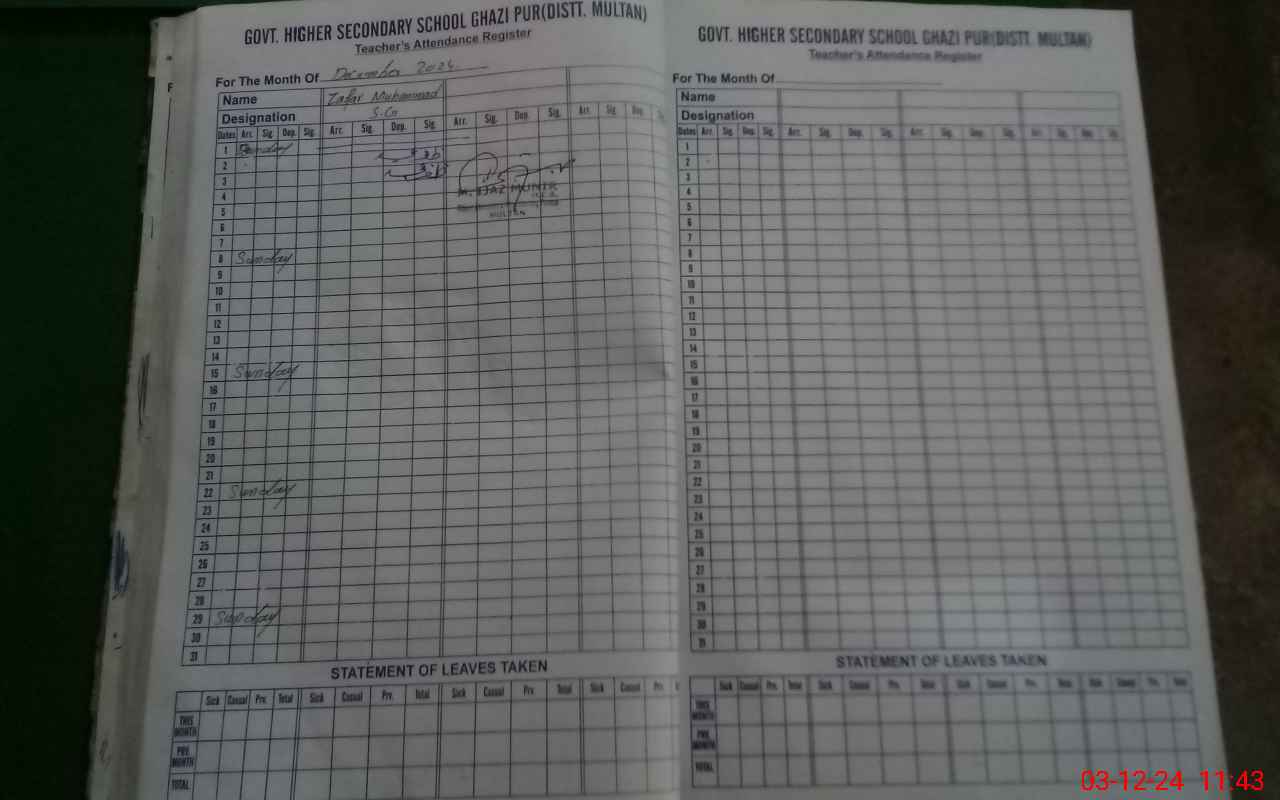 GOVT. HIGHER SECONDARY SCHOOL GHAZI PUR(DISTT. MULTAN)
Teacher's Attendance Register
For The Month Of December 2024
Name Zafar Muhammad
Designation S.G
Dates Arr. Sig. Dep. Sig. Arr. Sig. Dep. Sig. Arr. Sig. Dep. Sig. Arr. Sig. Dep.
1 Sunday
2
3
4 M. IJAZ MUNIR
5
6 MULTAN
7
8 Sunday
9
10
11
12
13
14
15 Sunday
16
17
18
19
20
21
22 Sunday
23
24
25
26
27
28
29 Sunday
30
31
STATEMENT OF LEAVES TAKEN
Sick Casual Prv. Total Sick Casual Prv. Total Sick Casual Prv. Total Sick Casual Prv.
THIS MONTH
PRE. MONTH
TOTAL
GOVT. HIGHER SECONDARY SCHOOL GHAZI PUR(DISTT. MULTAN)
Teacher's Attendance Register
For The Month Of
Name
Designation
Dates Arr. Sig. Dep. Sig. Arr. Sig. Dep. Sig. Arr. Sig. Dep. Sig. Arr. Sig. Dep. Sig.
1
2
3
4
5
6
7
8
9
10
11
12
13
14
15
16
17
18
19
20
21
22
23
24
25
26
27
28
29
30
31
STATEMENT OF LEAVES TAKEN
Sick Casual Prv. Total Sick Casual Prv. Total Sick Casual Prv. Total Sick Casual Prv. Total
THIS MONTH
PRE. MONTH
TOTAL
03-12-24 11:43